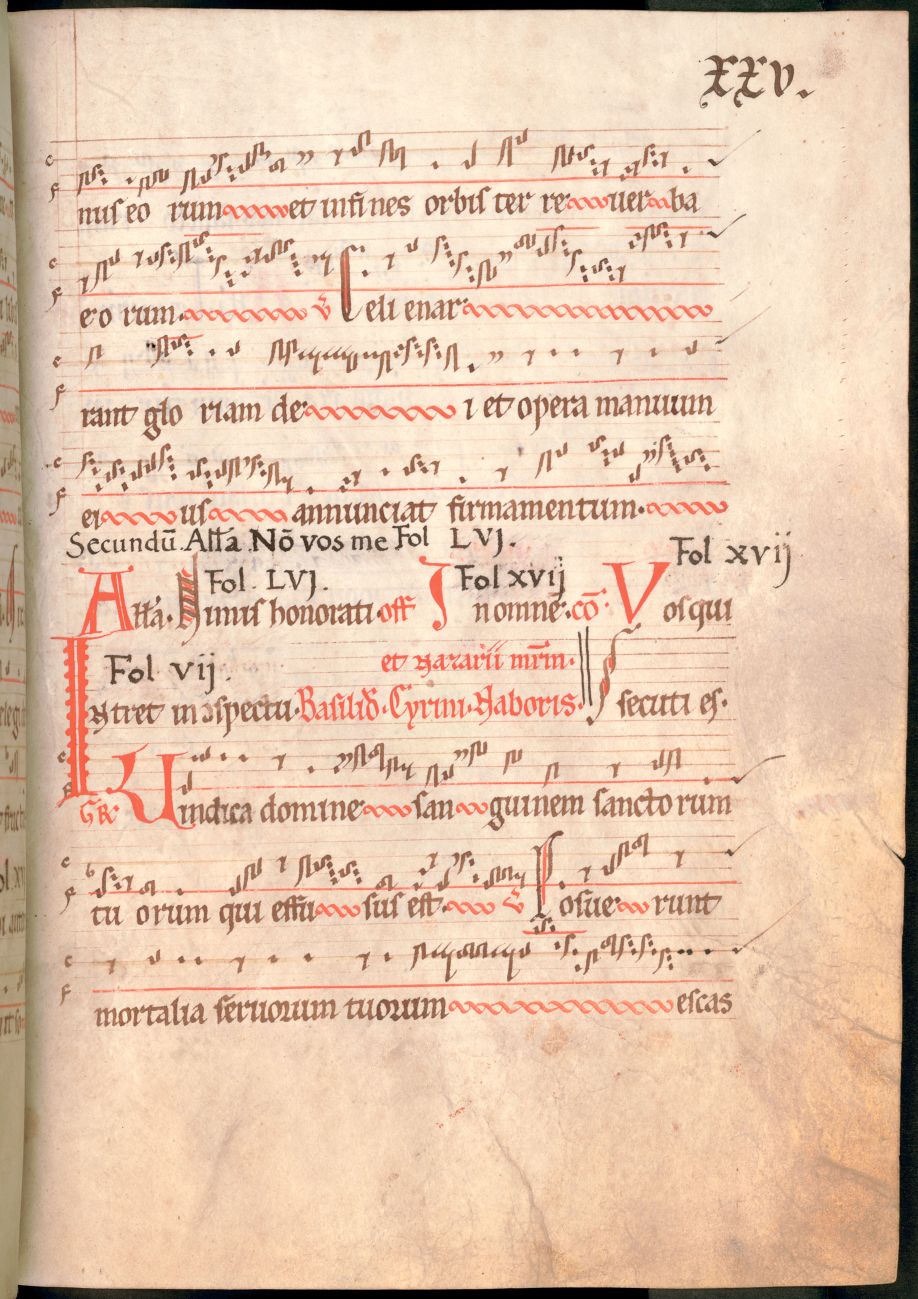 XXV.
nus eo rum et in fines orbis ter re uer ba
eo rum. V Celi enar
rant glo riam de i et opera manuum
ei us annunciat firmamentum.
Secundū. Alła. Nō vos me Fol LVJ.
Fol xvij
Fol. LVJ. Fol xvij
Alła. Nimis honorati. off In omnē. cō. Vos qui
Fol vij. et Nazarii mrm.
Intret in conspectu. Basilid. Cyrini. Naboris. secuti es.
GR Uindica domine san guinem sancto rum
tu orum qui effu sus est. V Posue runt
mortalia seruorum tuorum escas